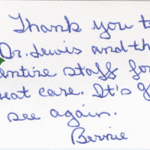 Thank you t
Dr. Lewis and th
entire staff for
eat care. It's g
see again.
Bernie